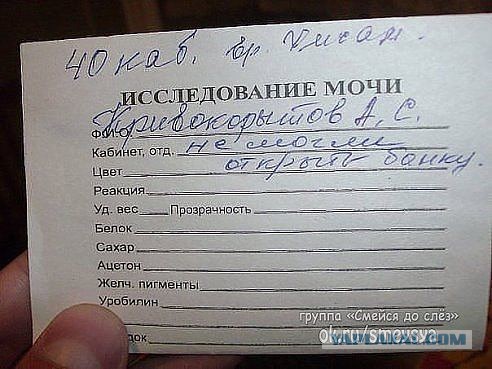 40 каб. вр. Хисам.
ИССЛЕДОВАНИЕ МОЧИ
Ф.И.О. Кривокорытов А. С.
Кабинет, отд. не могли
Цвет открыть банку.
Реакция
Уд. вес Прозрачность
Белок
Сахар
Ацетон
Желч. пигменты
Уробилин
группа «Смейся до слёз»
ok.ru/smeysya